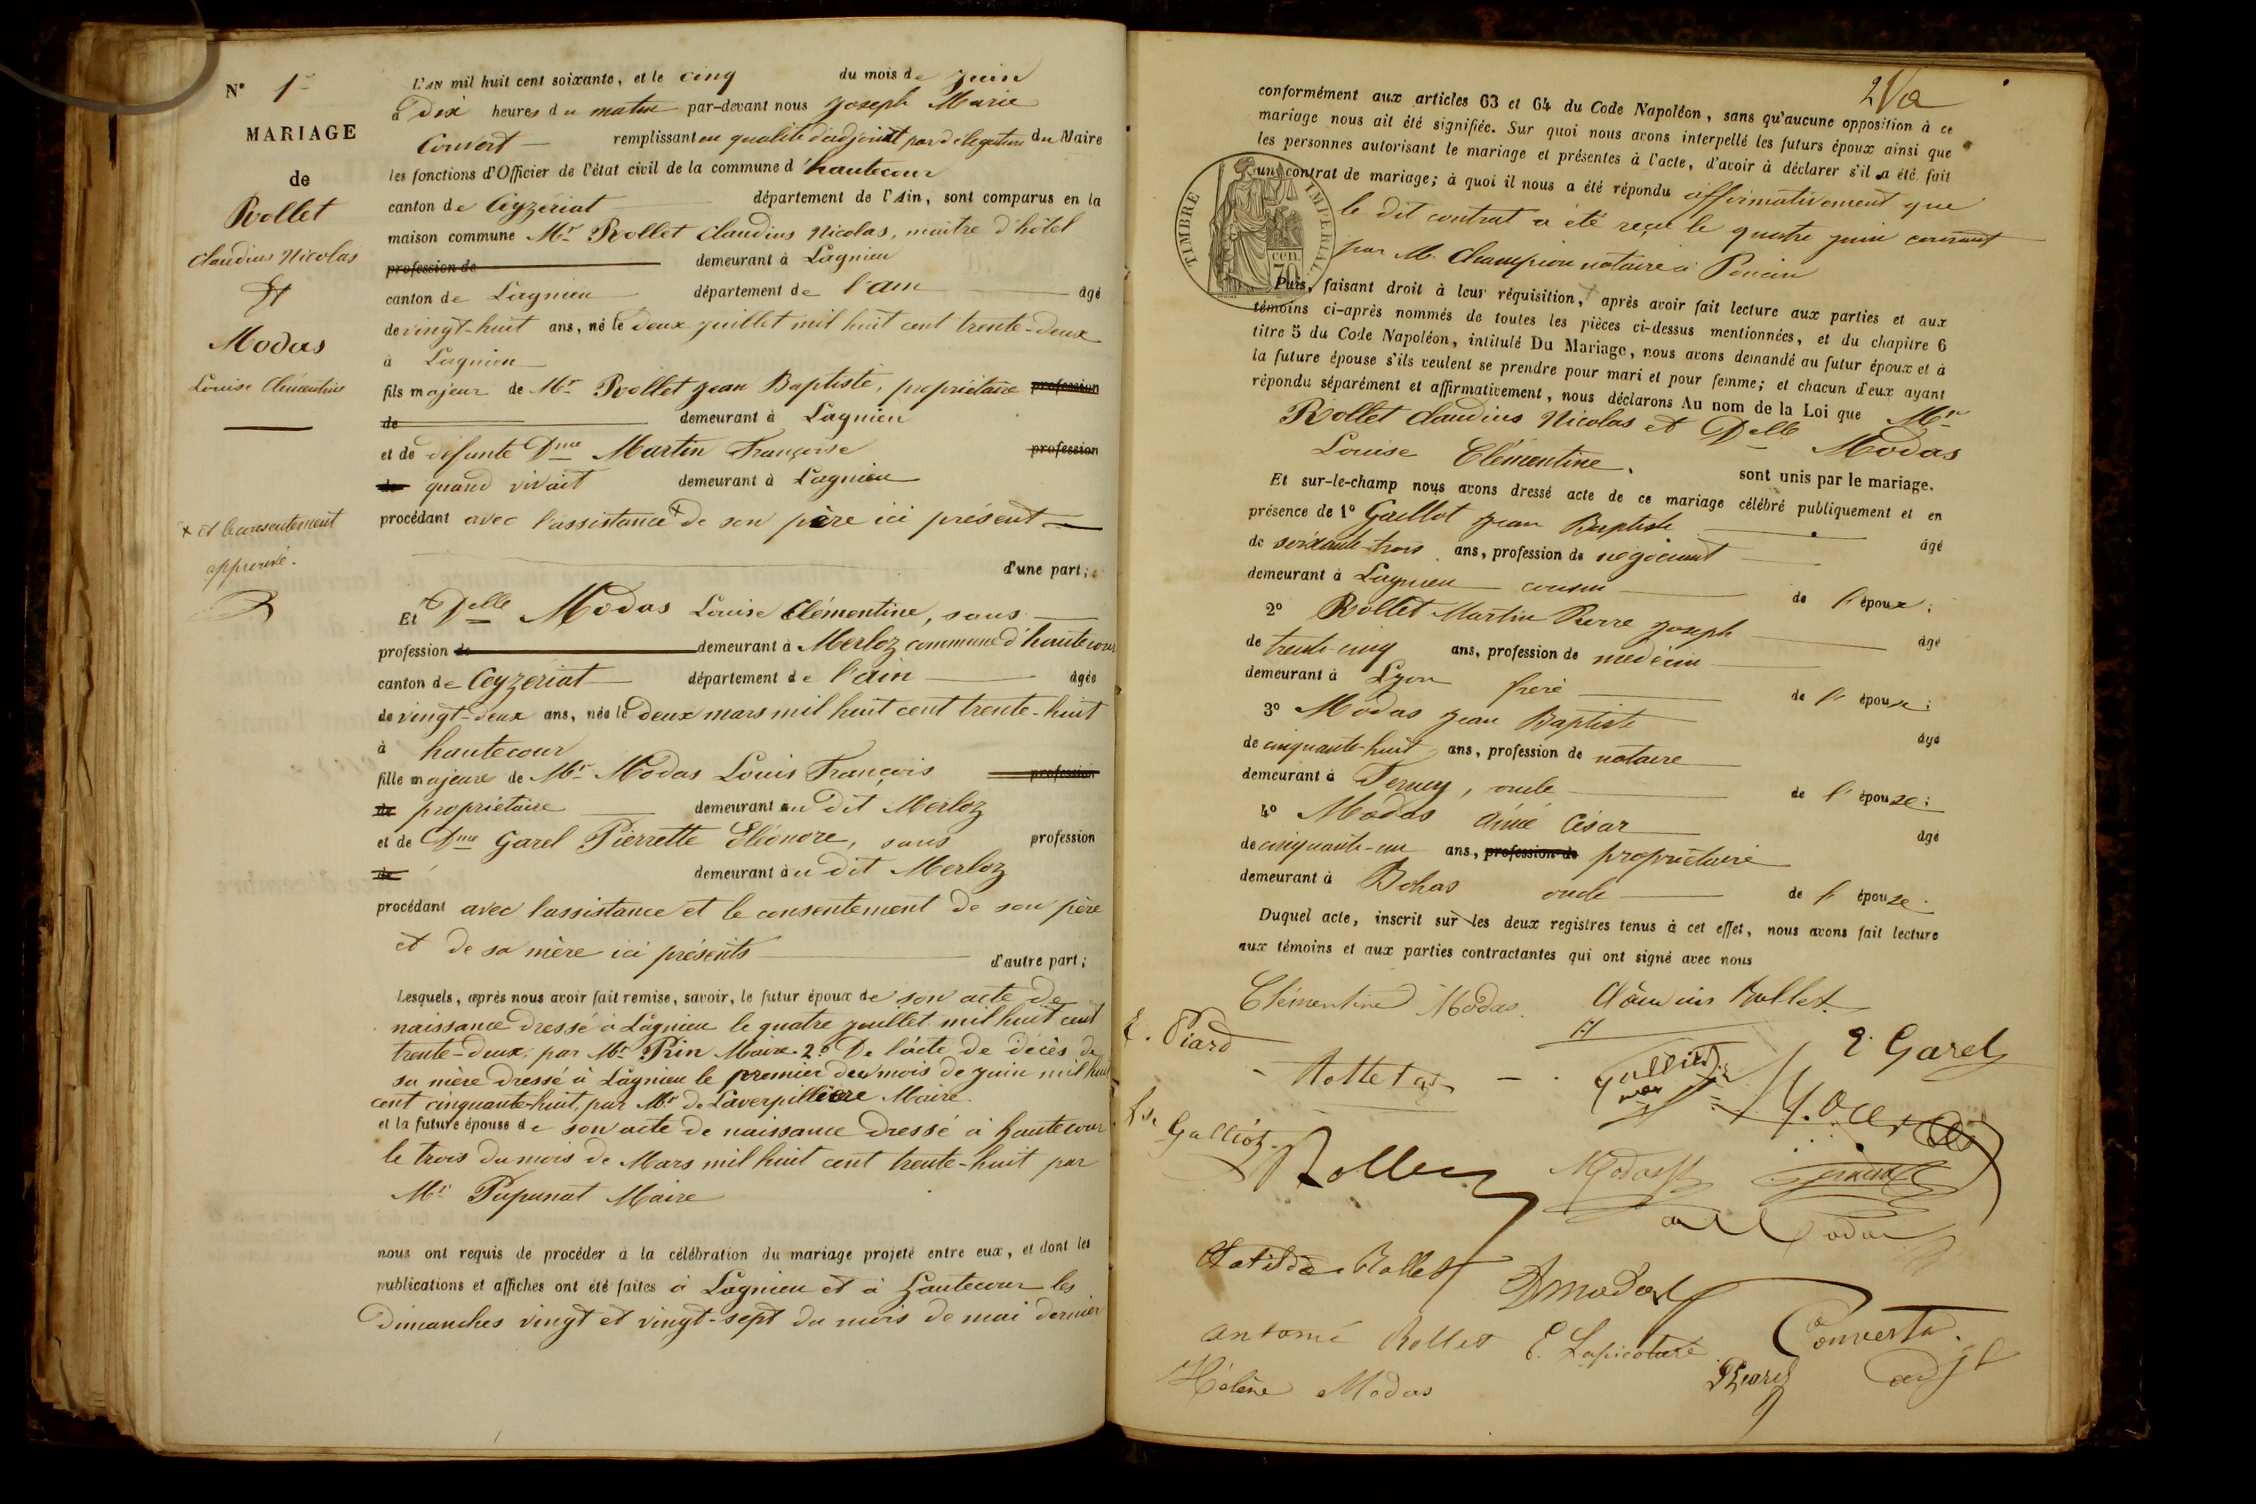 N° 1er
MARIAGE
de
Rollet
Claudius Nicolas
Et
Modas
Louise Clémentine
x et le consentement
approuvé.
L'AN mil huit cent soixante, et le cinq du mois de juin
à Dix heures du matin par-devant nous Joseph Marie
Convert remplissant en qualité d'adjoint par délégation du Maire
les fonctions d'Officier de l'état civil de la commune d'hautecour
canton de Ceyzeriat département de l'Ain, sont comparus en la
maison commune Mr Rollet Claudius Nicolas, maitre d'hôtel
profession de demeurant à Lagnieu
canton de Lagnieu département de l'ain âgé
de vingt-huit ans, né le deux juillet mil huit cent trente-deux
à Lagnieu
fils majeur de Mr Rollet Jean Baptiste, propriétaire profession
de demeurant à Lagnieu
et de défunte Dme Martin Françoise profession
de quand vivait demeurant à Lagnieu
procédant avec l'assistance x de son père ici présent
d'une part;
Et Delle Modas Louise Clémentine, sans
profession de demeurant à Merloz commune d'hautecour
canton de Ceyzeriat département de l'ain âgée
de vingt-deux ans, née le deux mars mil huit cent trente-huit
à hautecour
fille majeure de Mr Modas Louis François profession
de propriétaire demeurant au dit Merloz
et de Dme Garel Pierrette Eléonore, sans profession
de demeurant au dit Merloz
procédant avec l'assistance et le consentement de son père
et de sa mère ici présents d'autre part;
Lesquels, après nous avoir fait remise, savoir, le futur époux de son acte de
naissance dressé à Lagnieu le quatre juillet mil huit cent
trente-deux, par Mr Rin Maire. 2° De l'acte de décès de
sa mère dressé à Lagnieu le premier du mois de juin mil huit
cent cinquante-huit, par Mr de Laverpillière Maire.
et la future épouse de son acte de naissance dressé à hautecour
le trois du mois de Mars mil huit cent trente-huit par
Mr Papunat Maire
nous ont requis de procéder à la célébration du mariage projeté entre eux, et dont les
publications et affiches ont été faites à Lagnieu et à hautecour les
Dimanches vingt et vingt-sept du mois de mai dernier
conformément aux articles 63 et 64 du Code Napoléon, sans qu'aucune opposition à ce
mariage nous ait été signifiée. Sur quoi nous avons interpellé les futurs époux ainsi que
les personnes autorisant le mariage et présentes à l'acte, d'avoir à déclarer s'il a été fait
un contrat de mariage; à quoi il nous a été répondu affirmativement que
le dit contrat a été reçu le quatre juin courant
par M. Champion notaire à Poncin
TIMBRE IMPERIAL
70 cen.
Puis, faisant droit à leur réquisition, après avoir fait lecture aux parties et aux
témoins ci-après nommés de toutes les pièces ci-dessus mentionnées, et du chapitre 6
titre 5 du Code Napoléon, intitulé Du Mariage, nous avons demandé au futur époux et à
la future épouse s'ils veulent se prendre pour mari et pour femme; et chacun d'eux ayant
répondu séparément et affirmativement, nous déclarons Au nom de la Loi que Mr
Rollet Claudius Nicolas et Delle Modas
Louise Clémentine. sont unis par le mariage.
Et sur-le-champ nous avons dressé acte de ce mariage célébré publiquement et en
présence de 1° Galliot Jean Baptiste âgé
de soixante-trois ans, profession de négociant
demeurant à Lagnieu cousin de l'époux;
2° Rollet Martin Pierre Joseph âgé
de trente-cinq ans, profession de medécin
demeurant à Lyon frère de l'époux;
3° Modas Jean Baptiste âgé
de cinquante-huit ans, profession de notaire
demeurant à Ternay, oncle de l'épouse;
4° Modas Aimé César âgé
de cinquante-un ans, profession de propriétaire
demeurant à Bohas oncle de l'épouse.
Duquel acte, inscrit sur les deux registres tenus à cet effet, nous avons fait lecture
aux témoins et aux parties contractantes qui ont signé avec nous
Clémentine Modas. Claudius Rollet
Piard
E. Garel
Galliot
Rollet
Modas
Modas
Clotilde Rollet
Modas
Antonie Rollet E. Lapicotière Convert
adjt
Hélène Modas